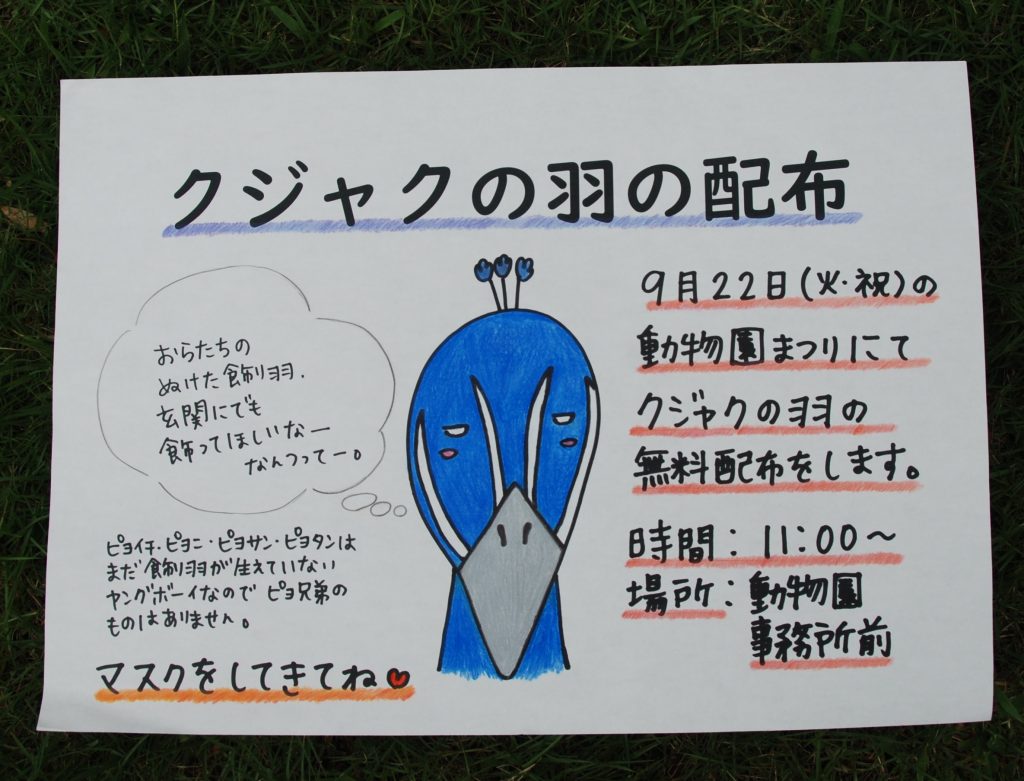 クジャクの羽の配布
おらたちの
ぬけた飾り羽、
玄関にでも
飾ってほしいなー
なんつってー。
ピヨイチ・ピヨニ・ピヨサン・ピヨタンは
まだ飾り羽が生えていない
ヤングボーイなので ピヨ兄弟の
ものはありません。
マスクをしてきてね
9月22日(火・祝)の
動物園まつりにて
クジャクの羽の
無料配布をします。
時間：11:00～
場所：動物園
事務所前